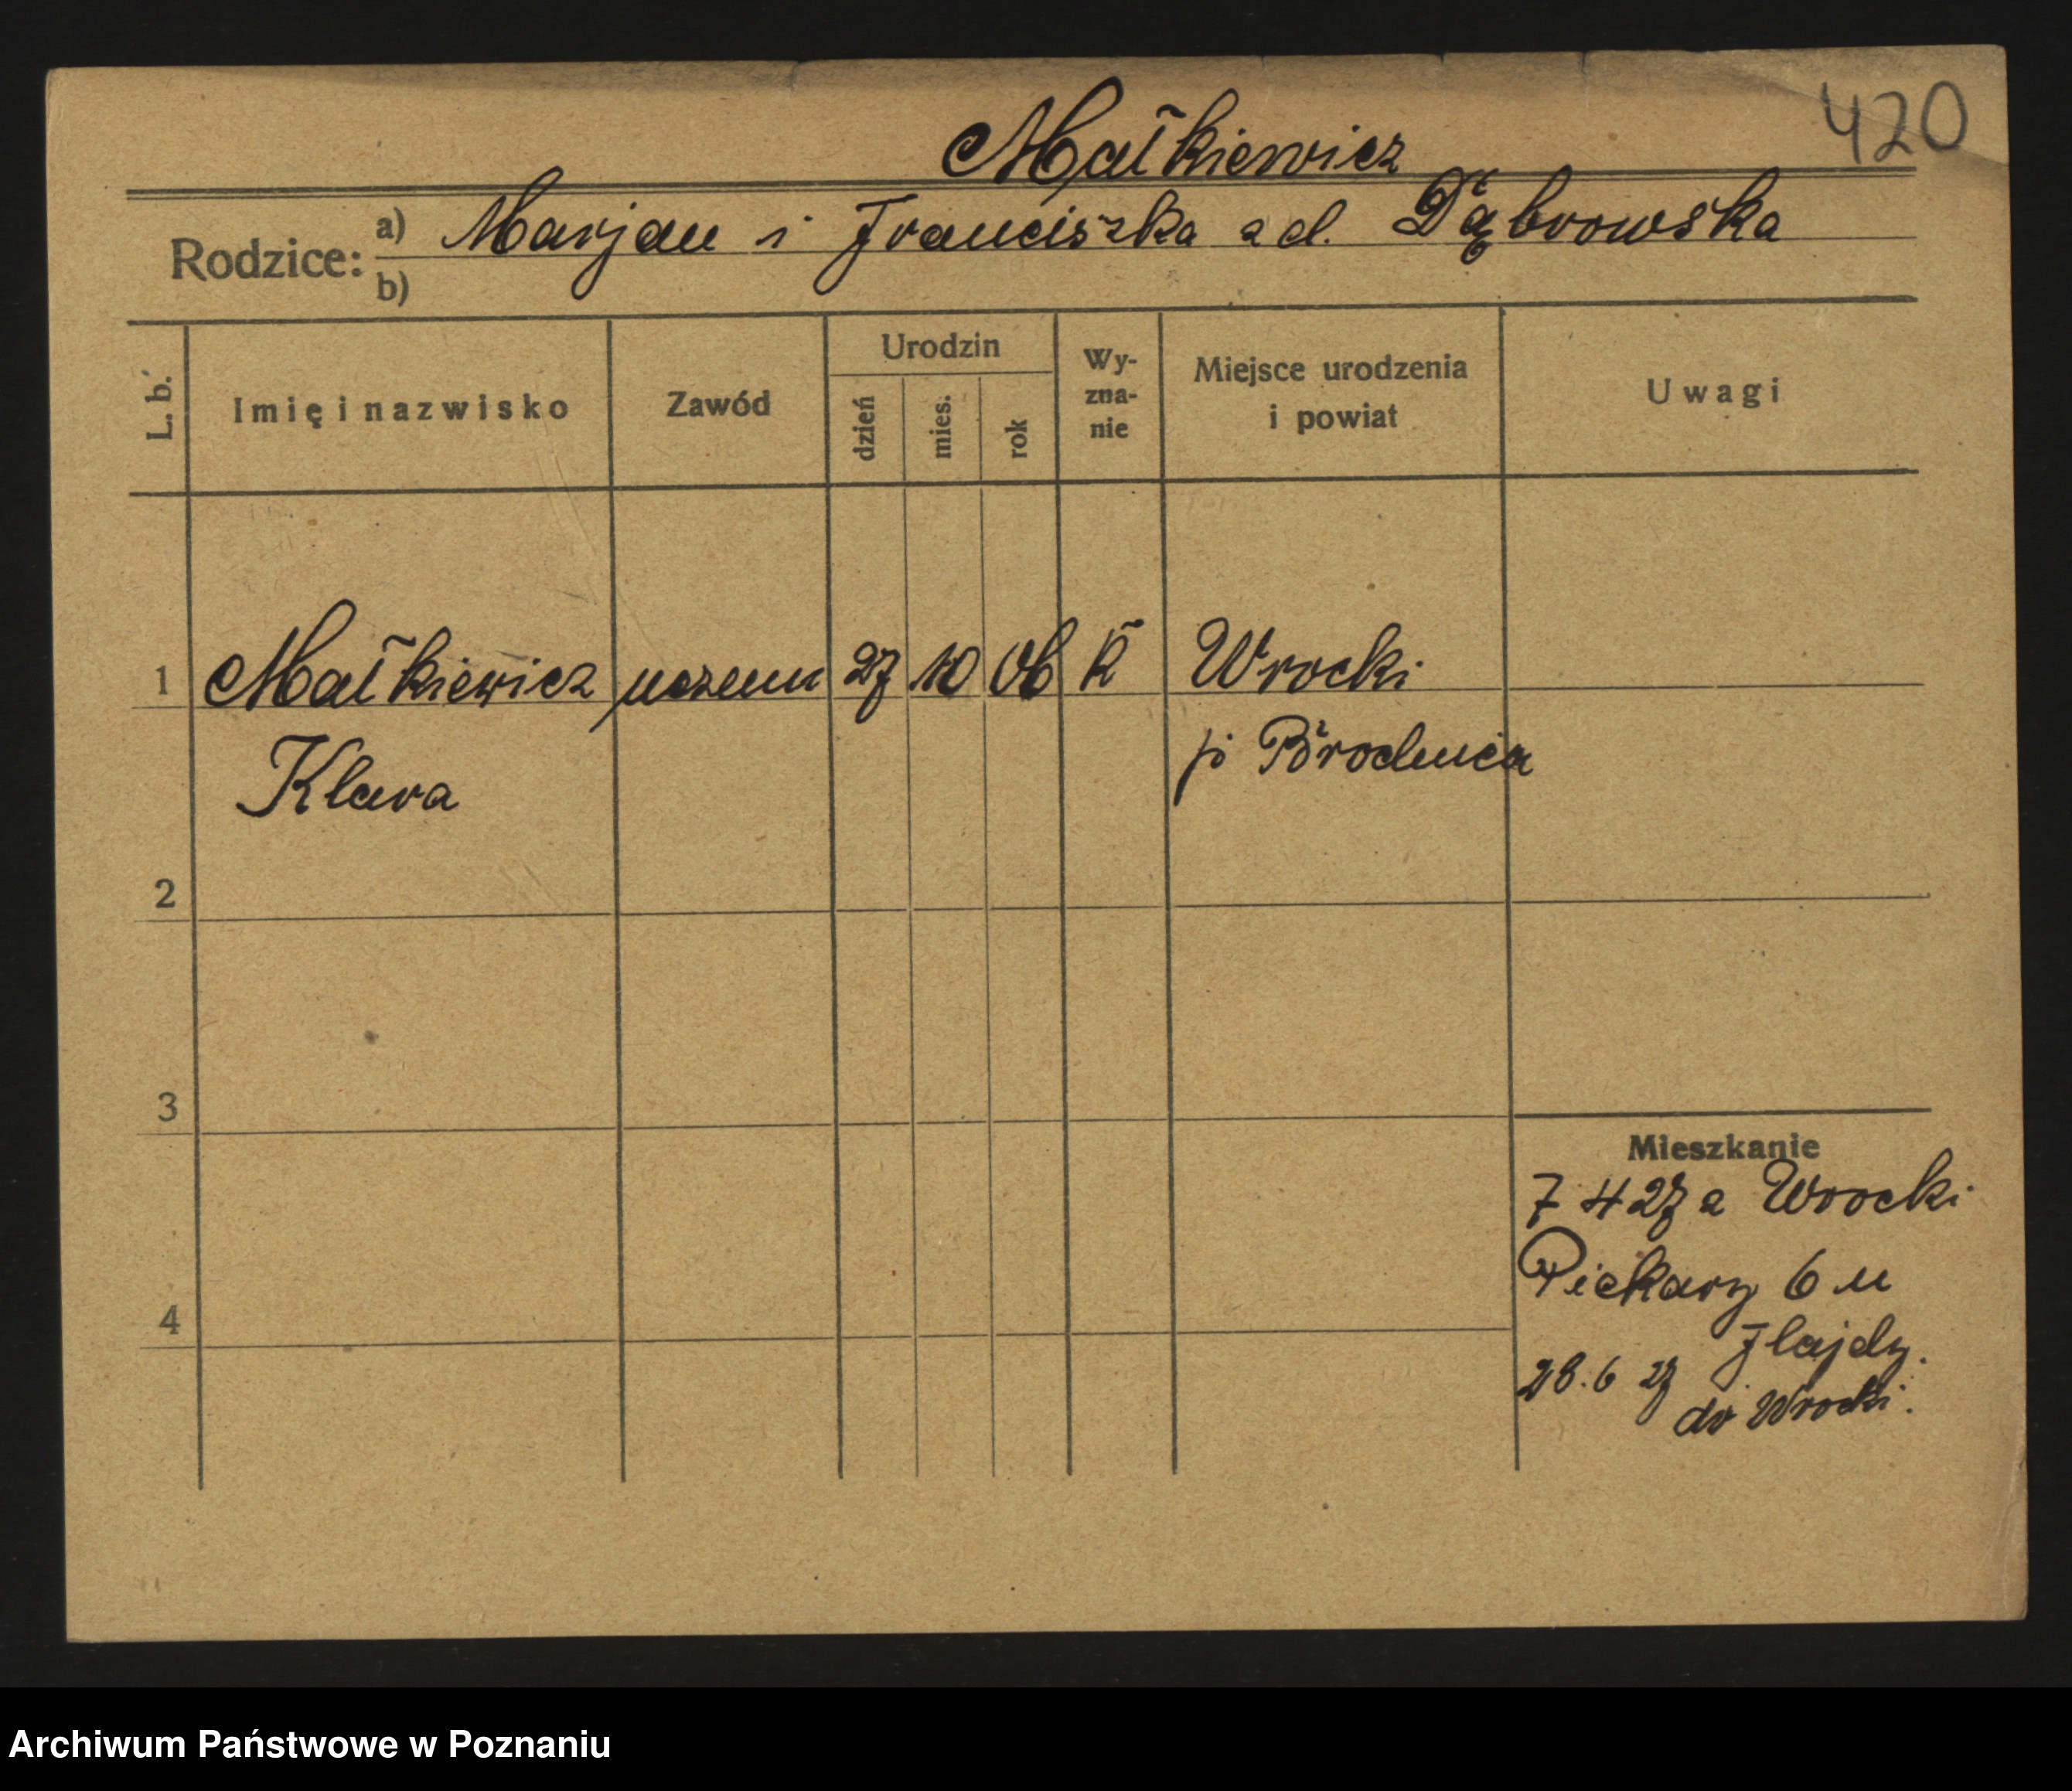 420
Małkiewicz
Rodzice: a) Marjan i Franciszka zd. Dąbrowska
b)
L. b. Imię i nazwisko Zawód Urodzin dzień mies. rok Wy-zna-nie Miejsce urodzenia i powiat Uwagi
1 Małkiewicz uczenn 27 10 06 k Wrocki
Klara p Brodnica
2
3
4
Mieszkanie
7 4 27 z Wrocki
Piekary 6 u
Flajdy.
28.6 27 do Wrocki.
Archiwum Państwowe w Poznaniu